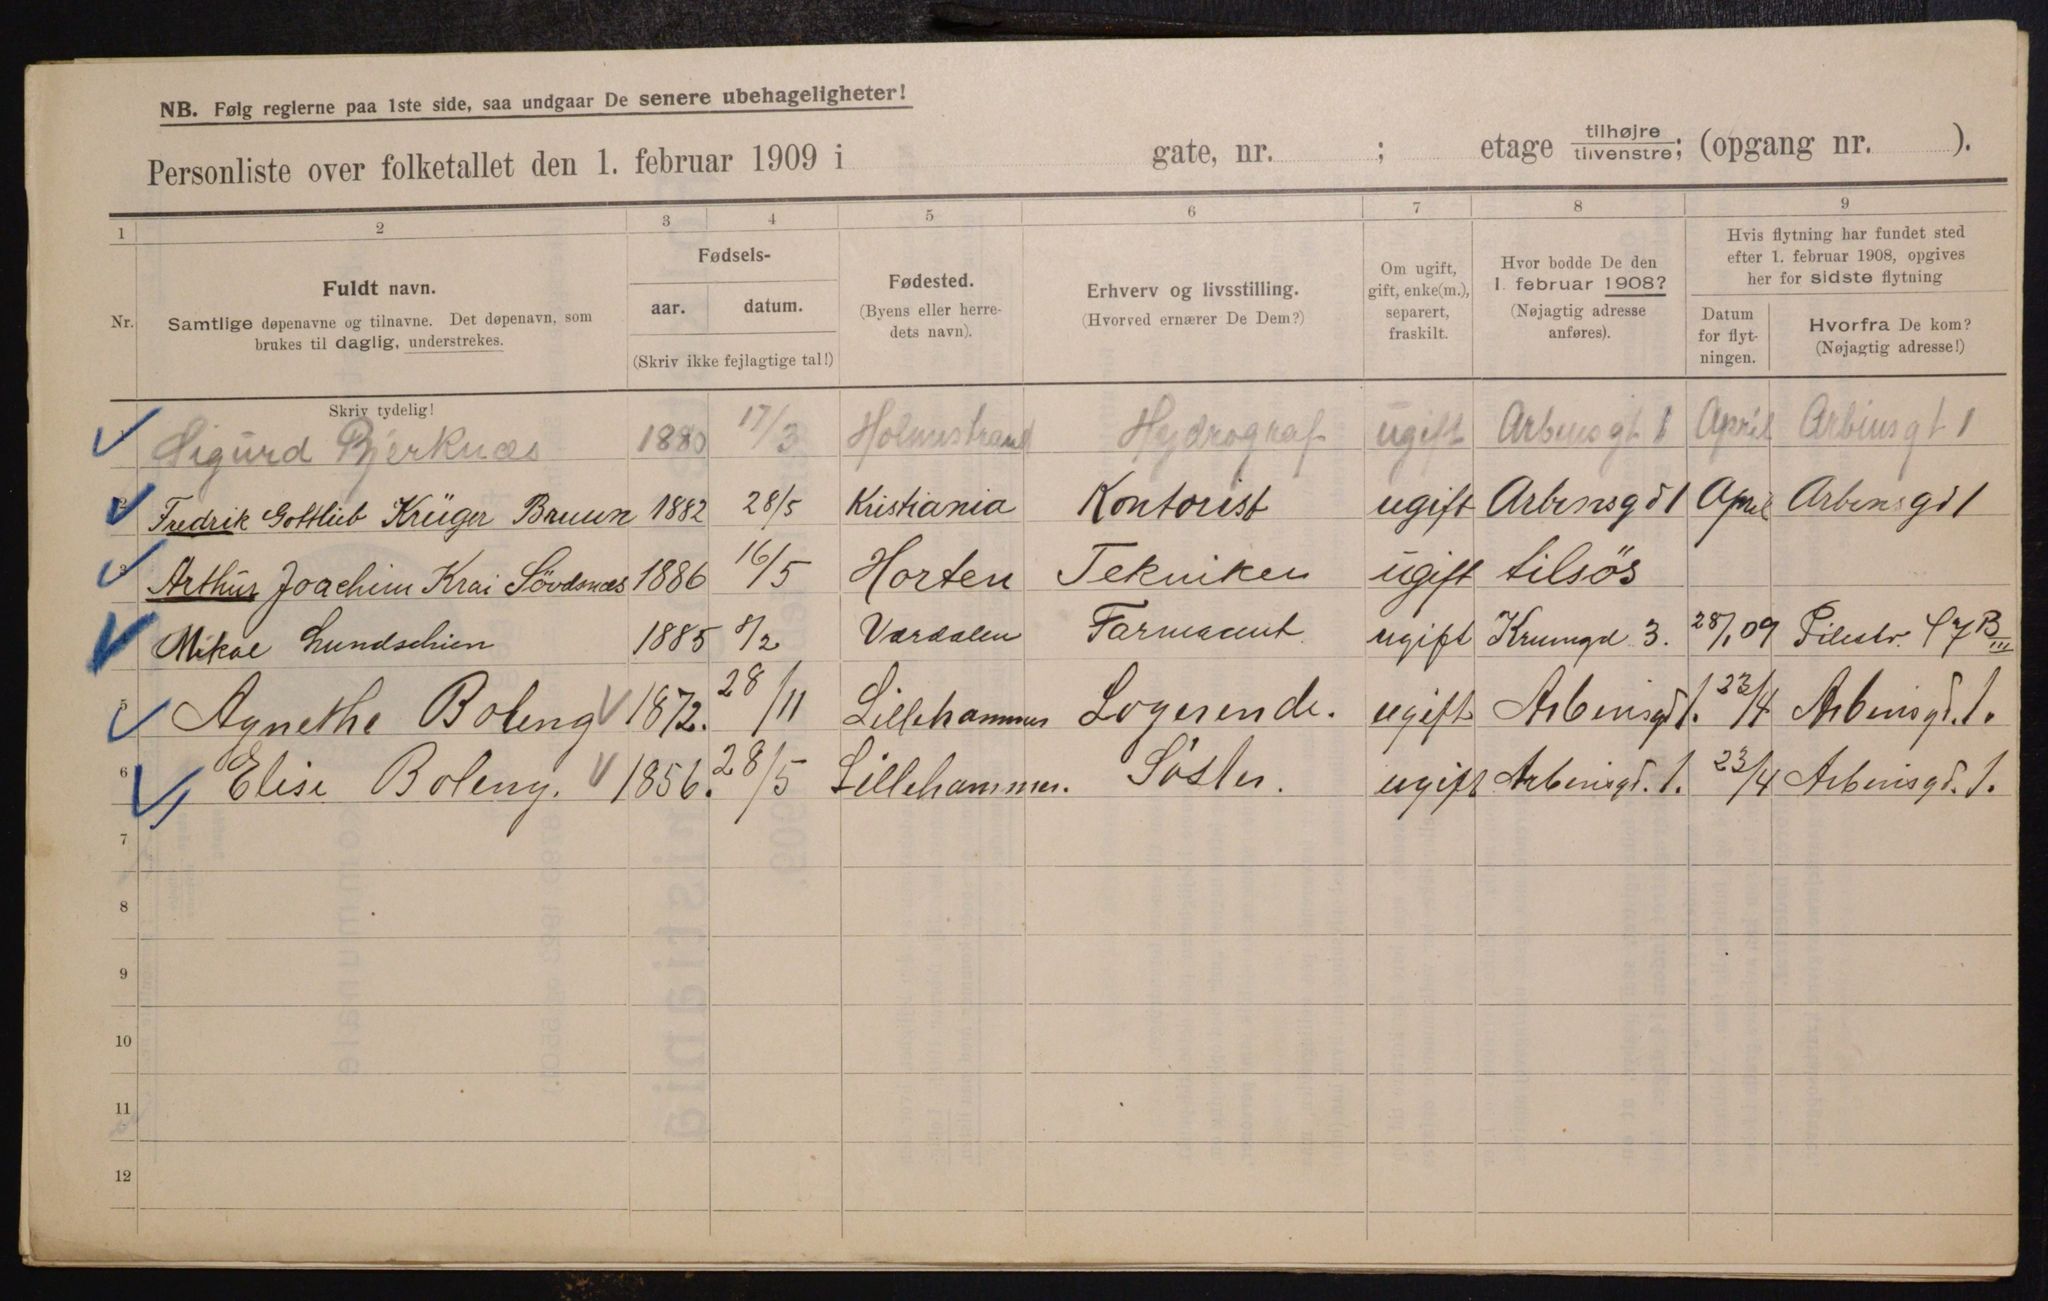 NB. Følg reglerne paa 1ste side, saa undgaar De senere ubehageligheter!
Personliste over folketallet den 1. februar 1909 i gate, nr. ; etage tilhøjre/tilvenstre; (opgang nr. ).
1 2 3 4 5 6 7 8 9
Nr.
Fuldt navn.
Samtlige døpenavne og tilnavne. Det døpenavn, som
brukes til daglig, understrekes.
Skriv tydelig!
Fødsels-
aar. datum.
(Skriv ikke fejlagtige tal!)
Fødested.
(Byens eller herre-
dets navn).
Erhverv og livsstilling.
(Hvorved ernærer De Dem?)
Om ugift,
gift, enke(m.),
separert,
fraskilt.
Hvor bodde De den
1. februar 1908?
(Nøjagtig adresse
anføres).
Hvis flytning har fundet sted
efter 1. februar 1908, opgives
her for sidste flytning
Datum
for flyt-
ningen.
Hvorfra De kom?
(Nøjagtig adresse!)
Sigurd Bjerknæs 1880 17/3 Holmestrand Hydrograf ugift Arbinsgt 1 April Arbinsgt 1
2 Fredrik Gottlieb Krüger Bruun 1882 28/5 Kristiania Kontorist ugift Arbinsgd 1 April Arbinsgd 1
3 Arthur Joachim Krai Sövdsnæs 1886 16/5 Horten Tekniker ugift tilsös
Mikal Lundschien 1885 8/2 Værdalen Farmaceut ugift Krumgd 3. 28/1 09 Pilestr. 47 B III
5 Agnethe Boleng 1872. 28/11 Lillehammer Logerende. ugift Arbinsgd 1. 23/4 Arbinsgd. 1.
6 Elise Boleng. 1856. 28/5 Lillehammer. Söster. ugift Arbinsgd. 1. 23/4 Arbinsgd. 1.
7
8
9
10
11
12